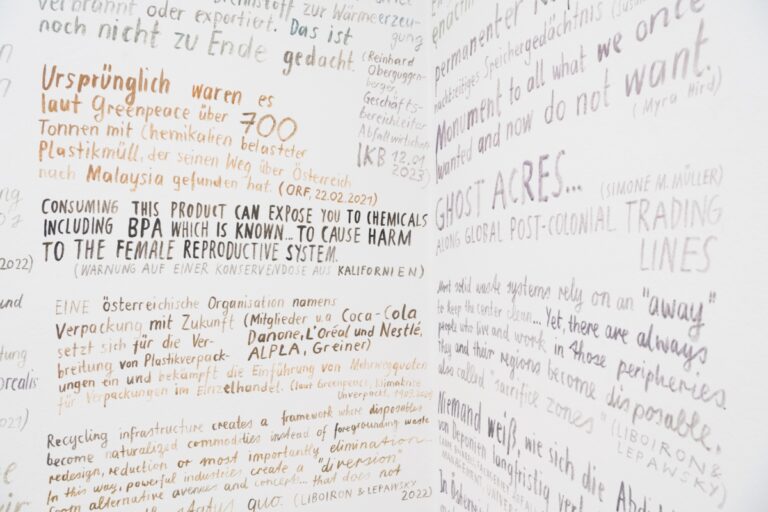 verbrannt oder exportiert. Das ist
noch nicht zu Ende gedacht.
(Reinhard
Oberguggen-
berger,
Geschäfts-
bereichleiter
Abfallwirtschaft
IKB 12.01
2023)
Ursprünglich waren es
laut Greenpeace über 700
Tonnen mit Chemikalien belasteter
Plastikmüll, der seinen Weg über Österreich
nach Malaysia gefunden hat. (ORF, 22.02.2021)
CONSUMING THIS PRODUCT CAN EXPOSE YOU TO CHEMICALS
INCLUDING BPA WHICH IS KNOWN... TO CAUSE HARM
TO THE FEMALE REPRODUCTIVE SYSTEM.
(WARNUNG AUF EINER KONSERVENDOSE AUS KALIFORNIEN)
EINE österreichische Organisation namens
Verpackung mit Zukunft (Mitglieder u.a Coca-Cola
Danone, L'Oréal und Nestlé,
ALPLA, Greiner)
setzt sich für die Ver-
breitung von Plastikverpack-
ungen ein und bekämpft die Einführung von Mehrwegquoten
für Verpackungen im Einzelhandel.
Recycling infrastructure creates a framework where disposables
become naturalized commodities instead of foregrounding waste
redesign, reduction or most importantly elimination.
In this way, powerful industries create a "diversion"
from alternative avenues and concepts... that does not
status quo. (LIBOIRON & LEPAWSKY
2022)
permanenter
Speichergedächtnis
Monument to all what we once
wanted and now do not want.
(Myra Hird)
GHOST ACRES... (SIMONE M. MÜLLER)
ALONG GLOBAL POST-COLONIAL TRADING
LINES
Most solid waste systems rely on an "away"
to keep the center clean... Yet, there are always
people who live and work in those peripheries.
They and their regions become disposable,
also called "sacrifice zones" (LIBOIRON &
LEPAWSKY)
Niemand weiß, wie sich die
von Deponien langfristig